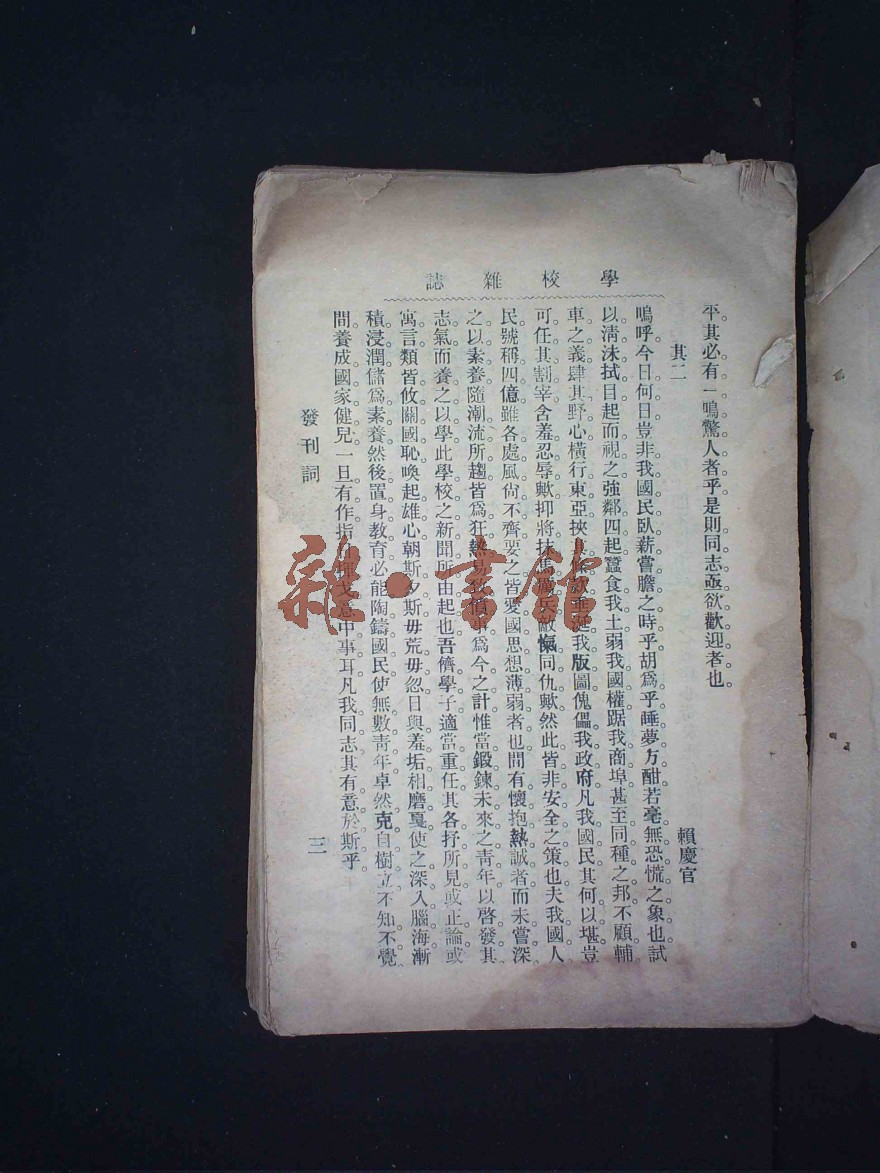 學校雜誌
平。其必有一鳴驚人者乎。是則同志亟欲歡迎者也。
其二 賴慶官
嗚呼。今日何日。豈非我國民臥薪嘗膽之時乎。胡爲乎睡夢方酣。若毫無恐慌之象也。試
以淸沫拭目。起而視之。強鄰四起。蠶食我土。弱我國權。踞我商埠。甚至同種之邦。不顧輔
車之義。肆其野心。橫行東亞。挾條欵垂涎我版圖。傀儡我政府。凡我國民。其何以堪。豈
可任其割宰含羞忍辱歟。抑將抹馬厲兵敵愾同仇歟。然此皆非安全之策也。夫我國人
民號稱四億。雖各處風尙不齊。要之皆愛國思想薄弱者也。間有懷抱熱誠者。而未嘗深
之以素養。隨潮流所趨。皆爲狂熱易致僨事。爲今之計。惟當鍛鍊未來之靑年。以啓發其
志氣。而養之以學。此學校之新聞所由起也。吾儕學子。適當重任。其各抒所見。或正論或
寓言。類皆攸關國恥。喚起雄心。朝斯夕斯。毋荒毋忽。日與羞垢相磨戛。使之深入腦海。漸
積浸潤。儲爲素養。然後置身敎育。必能陶鑄國民。使無數靑年。卓然克自樹立。不知不覺
間。養成國家健兒。一旦有作。指揮戈意中事耳。凡我同志。其有意於斯乎。
發刊詞
三
雜·書館